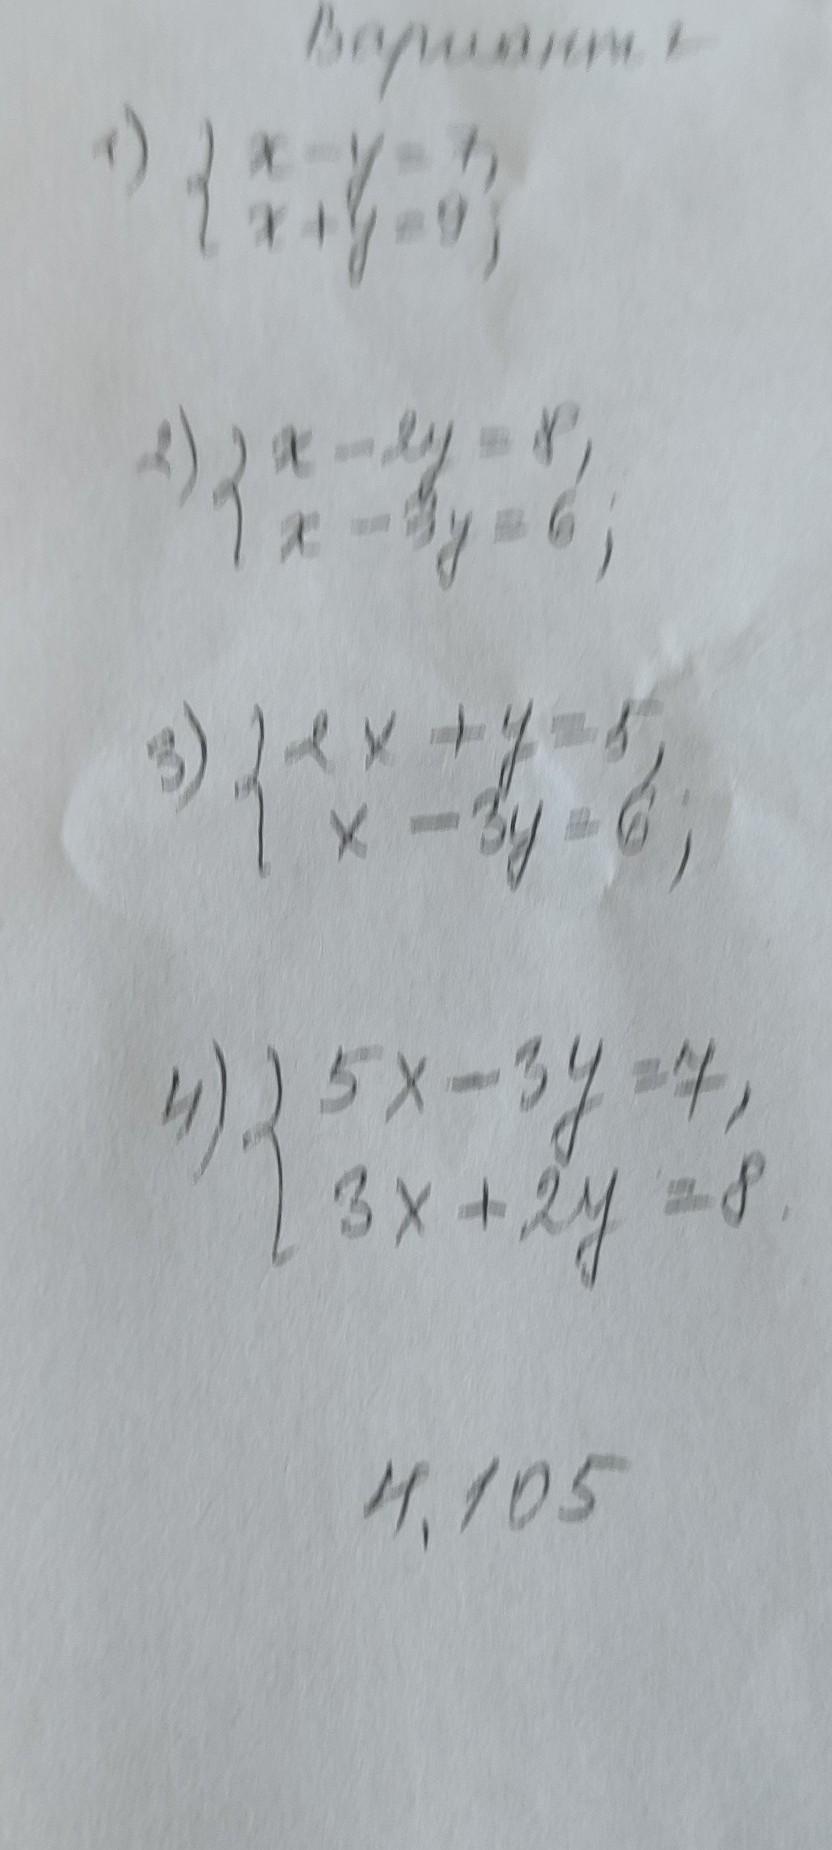 Вариант 1
1) { x - y = 7,
x + y = 9;
2) { x - 2y = 8,
x - 3y = 6;
3) { 2x + y = 5,
x - 3y = 6;
4) { 5x - 3y = 7,
3x + 2y = 8.
4.105